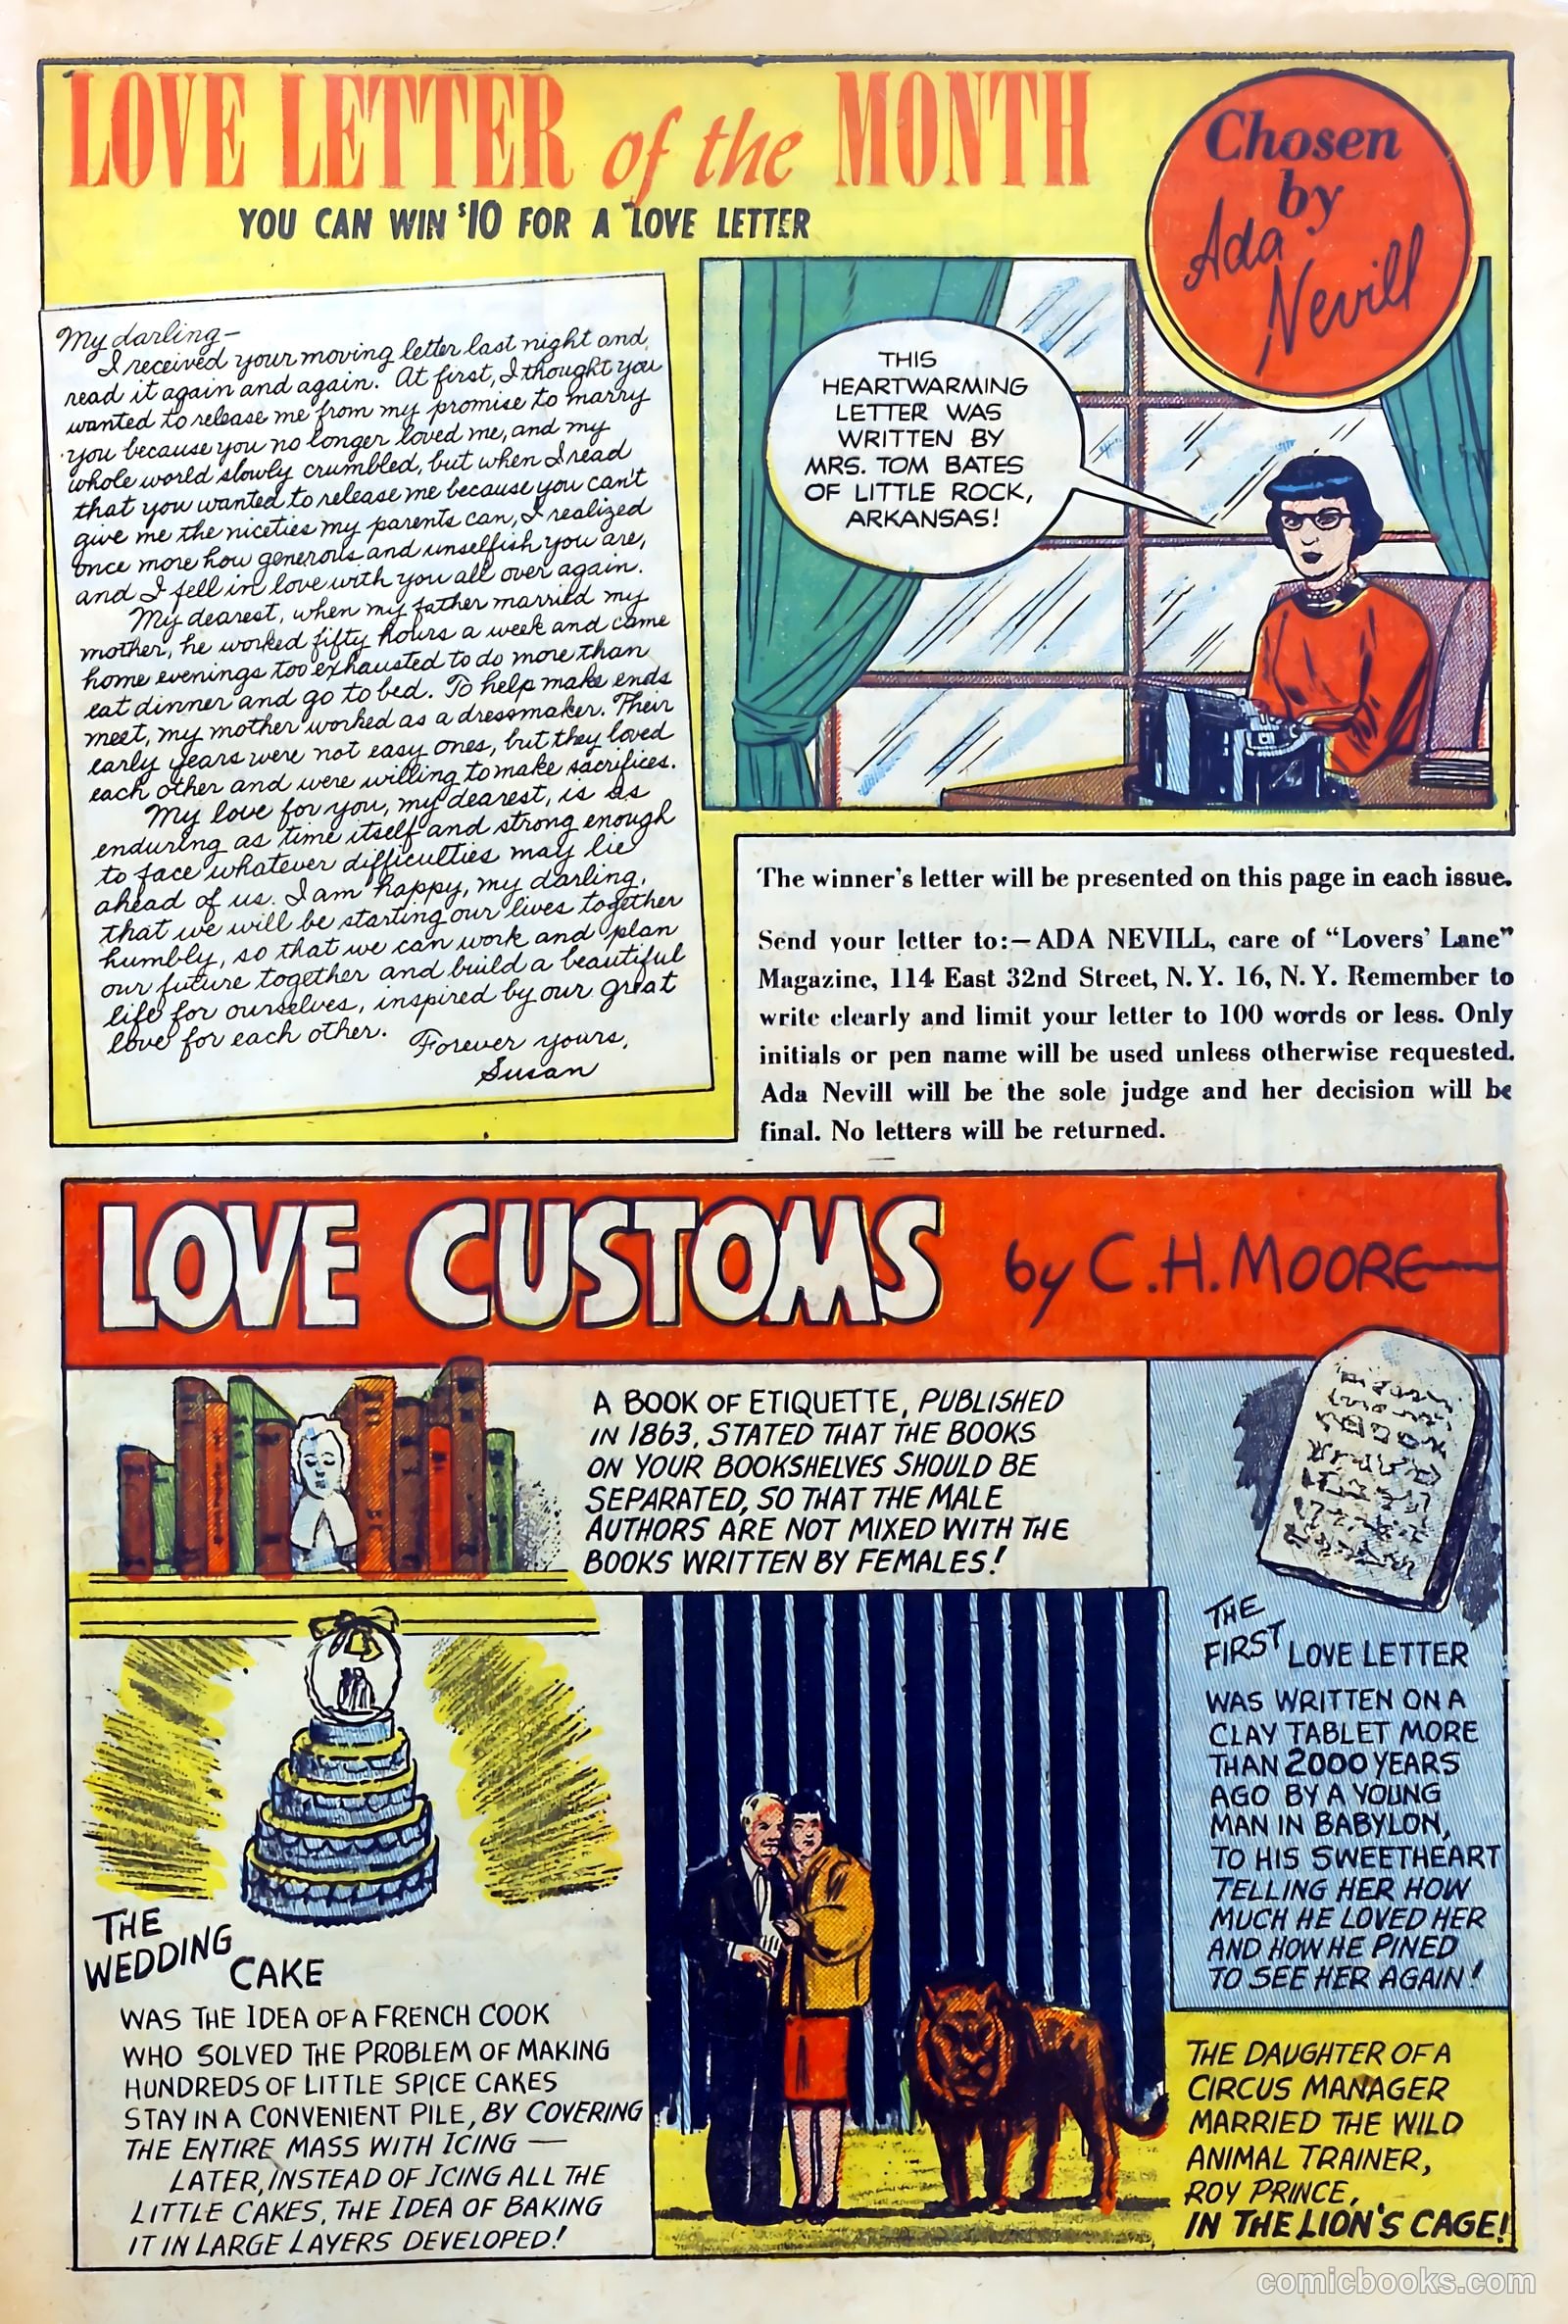 LOVE LETTER of the MONTH
YOU CAN WIN $10 FOR A LOVE LETTER
Chosen
by
Ada
Nevill
My darling—
I received your moving letter last night and
read it again and again. At first, I thought you
wanted to release me from my promise to marry
you because you no longer loved me, and my
whole world slowly crumbled, but when I read
that you wanted to release me because you can't
give me the niceties my parents can, I realized
once more how generous and unselfish you are,
and I fell in love with you all over again.
My dearest, when my father married my
mother, he worked fifty hours a week and came
home evenings too exhausted to do more than
eat dinner and go to bed. To help make ends
meet, my mother worked as a dressmaker. Their
early years were not easy ones, but they loved
each other and were willing to make sacrifices.
My love for you, my dearest, is as
enduring as time itself and strong enough
to face whatever difficulties may lie
ahead of us. I am happy, my darling,
that we will be starting our lives together
humbly, so that we can work and plan
our future together and build a beautiful
life for ourselves, inspired by our great
love for each other.
Forever yours,
Susan
THIS
HEARTWARMING
LETTER WAS
WRITTEN BY
MRS. TOM BATES
OF LITTLE ROCK,
ARKANSAS!
The winner's letter will be presented on this page in each issue.
Send your letter to:—ADA NEVILL, care of "Lovers' Lane"
Magazine, 114 East 32nd Street, N. Y. 16, N. Y. Remember to
write clearly and limit your letter to 100 words or less. Only
initials or pen name will be used unless otherwise requested.
Ada Nevill will be the sole judge and her decision will be
final. No letters will be returned.
LOVE CUSTOMS by C.H. MOORE
A BOOK OF ETIQUETTE, PUBLISHED
IN 1863, STATED THAT THE BOOKS
ON YOUR BOOKSHELVES SHOULD BE
SEPARATED, SO THAT THE MALE
AUTHORS ARE NOT MIXED WITH THE
BOOKS WRITTEN BY FEMALES!
THE
FIRST LOVE LETTER
WAS WRITTEN ON A
CLAY TABLET MORE
THAN 2000 YEARS
AGO BY A YOUNG
MAN IN BABYLON,
TO HIS SWEETHEART
TELLING HER HOW
MUCH HE LOVED HER
AND HOW HE PINED
TO SEE HER AGAIN!
THE
WEDDING
CAKE
WAS THE IDEA OF A FRENCH COOK
WHO SOLVED THE PROBLEM OF MAKING
HUNDREDS OF LITTLE SPICE CAKES
STAY IN A CONVENIENT PILE, BY COVERING
THE ENTIRE MASS WITH ICING —
LATER, INSTEAD OF ICING ALL THE
LITTLE CAKES, THE IDEA OF BAKING
IT IN LARGE LAYERS DEVELOPED!
THE DAUGHTER OF A
CIRCUS MANAGER
MARRIED THE WILD
ANIMAL TRAINER,
ROY PRINCE,
IN THE LION'S CAGE!
comicbooks.com